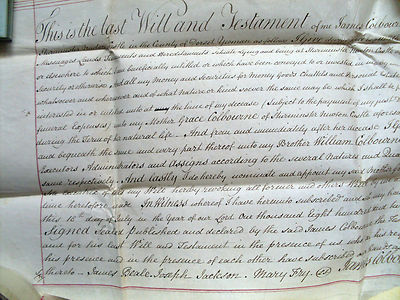 This is the last Will and Testament of me James Colbourne
Castle in the County of Dorset Yeoman as follows I give
Messuages Lands Tenements and Hereditaments situate lying and being at Sturminster Newton Castle
or elsewhere to which I am beneficially intitled or which have been conveyed to or vested in me
Security or otherwise And all my Money and Securities for Money Goods Chattels and Personal Estate
whatsoever and wheresoever and of what Nature or kind soever the same may be which I shall be
interested in or intitled unto at the time of my decease (Subject to the payment of my just
funeral Expences) unto my Mother Grace Colbourne of Sturminster Newton Castle aforesaid
during the Term of her natural life And from and immediately after her decease I
and bequeath the same and every part thereof unto my Brother William Colbourne
Executors Administrators and Assigns according to the several Natures and
same respectively And Lastly I do hereby nominate and appoint my said Mother
my Will hereby revoking all former and other Wills by
time heretofore made In Witness whereof I have hereunto subscribed
this 10th day of July in the Year of our Lord One thousand eight hundred and
Signed Sealed Published and declared by the said James Colbourne the
and for his last Will and Testament in the presence of us who at his
his presence and in the presence of each other have subscribed
thereto James Beale Joseph Jackson Mary Fry James Colbourne